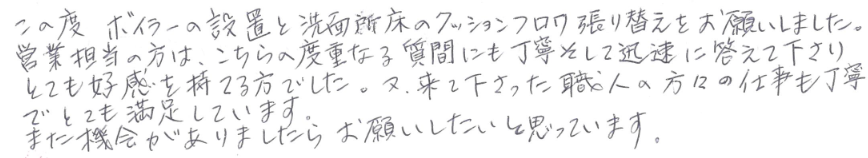 この度 ボイラーの設置と洗面所床のクッションフロワ張り替えをお願いしました。
営業担当の方は、こちらの度重なる質問にも丁寧そして迅速に答えて下さり
とても好感を持てる方でした。又、来て下さった職人の方々の仕事も丁寧
でとても満足しています。
また機会がありましたら お願いしたいと思っています。